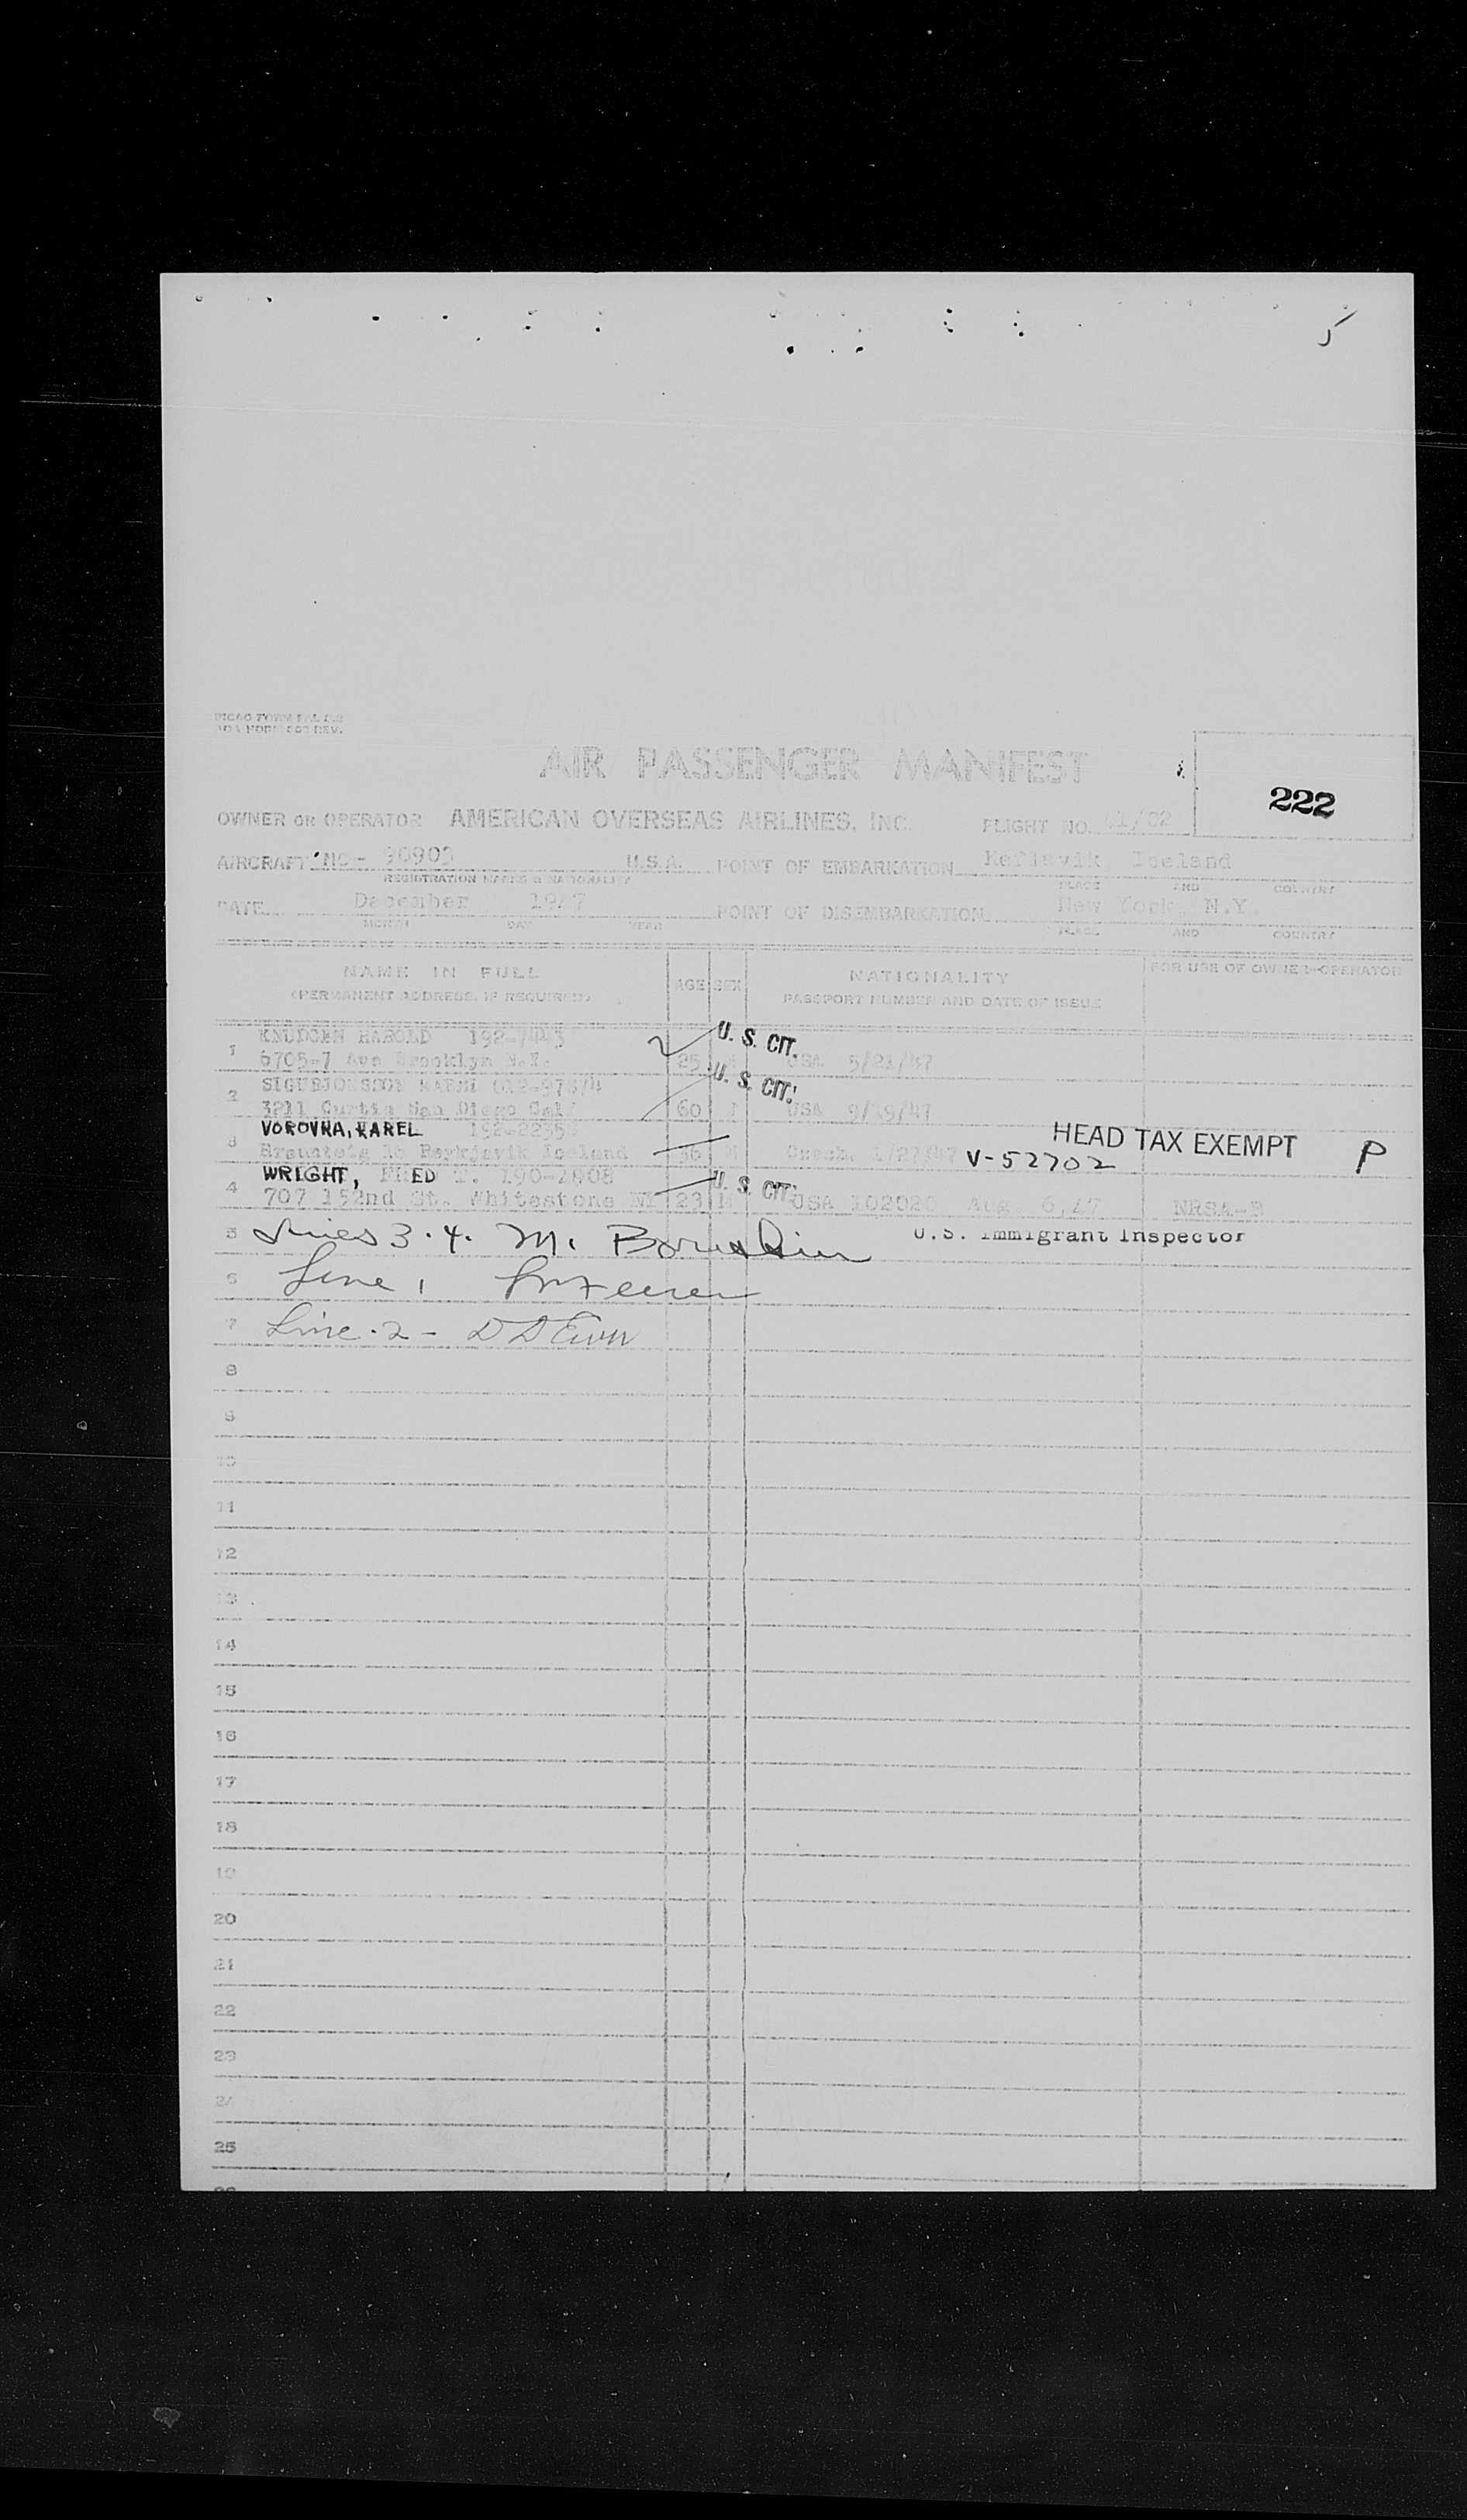 AIR PASSENGER MANIFEST
222
OWNER OR OPERATOR AMERICAN OVERSEAS AIRLINES, INC. FLIGHT NO.
AIRCRAFT NC- 90903 U.S.A. POINT OF EMBARKATION Keflavik Iceland
REGISTRATION MARKS & NATIONALITY PLACE AND COUNTRY
DATE December 1947 POINT OF DISEMBARKATION New York, N.Y.
MONTH DAY YEAR PLACE AND COUNTRY
NAME IN FULL AGE SEX NATIONALITY FOR USE OF OWNER-OPERATOR
(PERMANENT ADDRESS, IF REQUIRED) PASSPORT NUMBER AND DATE OF ISSUE
1 HAROLD U. S. CIT.
6705-7 Ave Brooklyn N.Y. 25 USA 5/21/47
2 U. S. CIT.
3211 Curtis San Diego Cal 60 USA 9/19/47
3 VOROVKA, KAREL HEAD TAX EXEMPT P
Reykjavik Iceland 36 Czech. V-52702
4 WRIGHT, FRED U. S. CIT.
707 152nd St. Whitestone NY 23 M USA 102020 Aug. 6,47
5 Lines 3.4. M. U.S. Immigrant Inspector
6 Line 1
7 Line.2 -
8
9
10
11
12
13
14
15
16
17
18
19
20
21
22
23
24
25